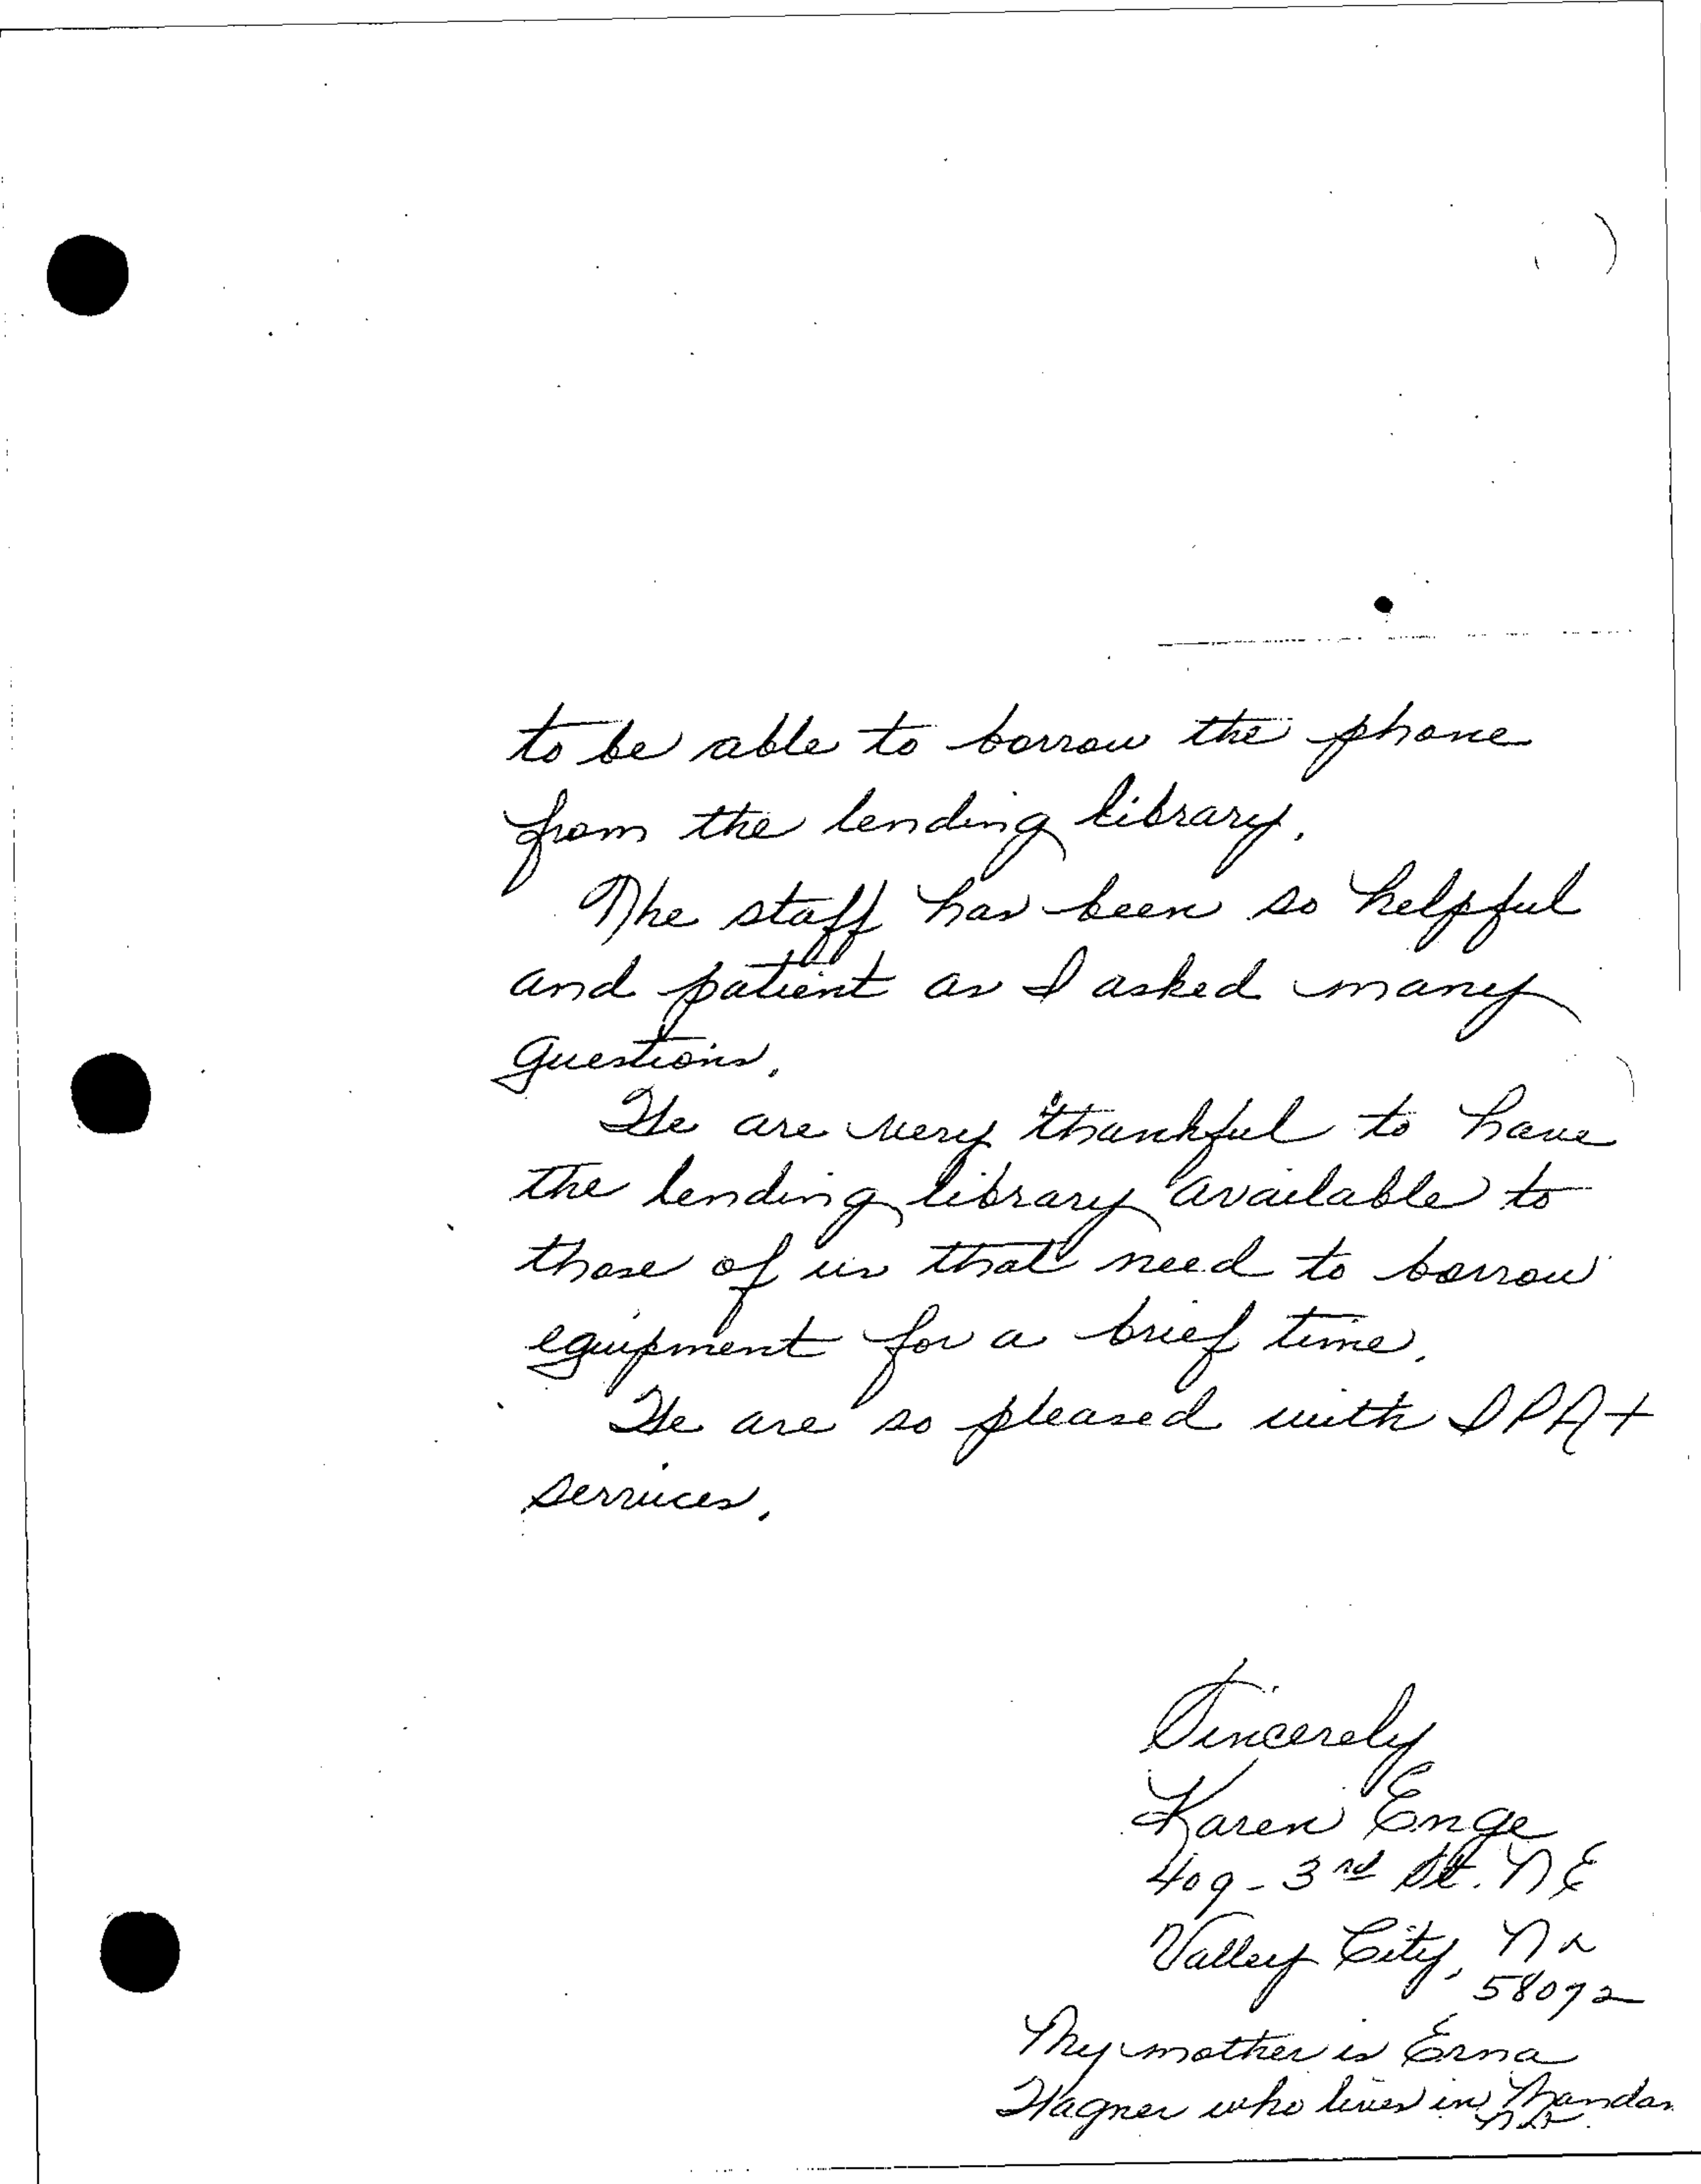 to be able to borrow the phone
from the lending library.
The staff has been so helpful
and patient as I asked many
questions.
We are very thankful to have
the lending library available to
those of us that need to borrow
equipment for a brief time.
We are so pleased with IPAT
services.
Sincerely
Karen Enge
409 - 3rd St. NE
Valley City, ND
58072
My mother is Erna
Wagner who lives in Mandan
ND.